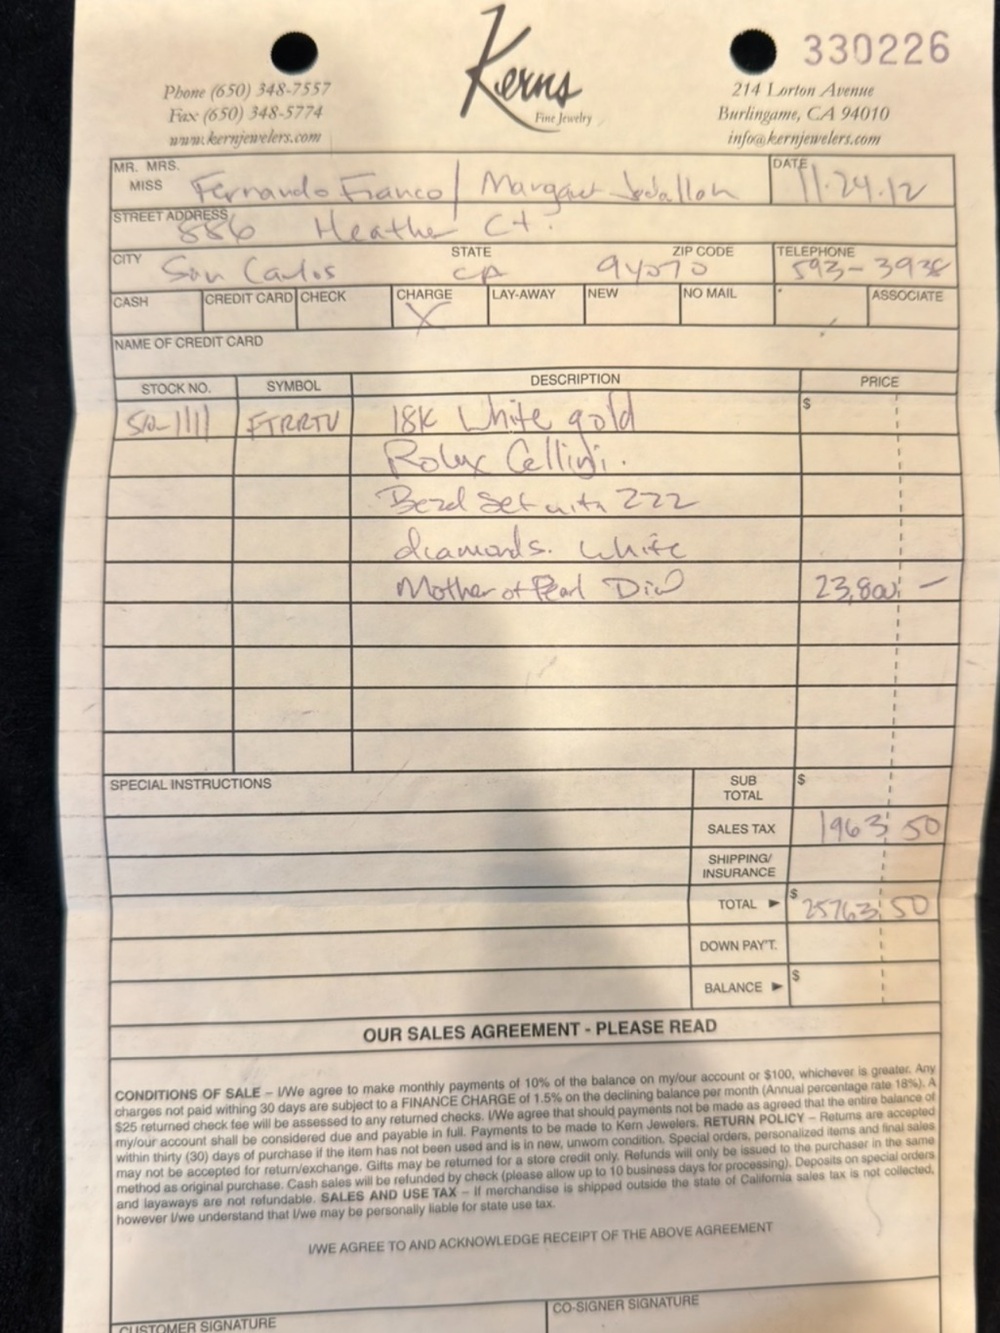 Kerns
Fine Jewelry
330226
Phone (650) 348-7557
Fax (650) 348-5774
www.kernjewelers.com
214 Lorton Avenue
Burlingame, CA 94010
info@kernjewelers.com
MR. MRS. MISS Fernando Franco / Margaret DATE 11.24.12
STREET ADDRESS 886 Heather Ct.
CITY San Carlos STATE CA ZIP CODE 94070 TELEPHONE 593-3938
CASH CREDIT CARD CHECK CHARGE X LAY-AWAY NEW NO MAIL ASSOCIATE
NAME OF CREDIT CARD
STOCK NO. SYMBOL DESCRIPTION PRICE
FTRRTU 18K White gold $
Rolex Cellini.
Bezel Set with 222
diamonds. White
Mother of Pearl Dial 23,800 —
SPECIAL INSTRUCTIONS SUB TOTAL $
SALES TAX 1963 50
SHIPPING/ INSURANCE
TOTAL ► $ 25763 50
DOWN PAY'T.
BALANCE ► $
OUR SALES AGREEMENT - PLEASE READ
CONDITIONS OF SALE – I/We agree to make monthly payments of 10% of the balance on my/our account or $100, whichever is greater. Any
charges not paid withing 30 days are subject to a FINANCE CHARGE of 1.5% on the declining balance per month (Annual percentage rate 18%). A
$25 returned check fee will be assessed to any returned checks. I/We agree that should payments not be made as agreed that the entire balance of
my/our account shall be considered due and payable in full. Payments to be made to Kern Jewelers. RETURN POLICY – Returns are accepted
within thirty (30) days of purchase if the item has not been used and is in new, unworn condition. Special orders, personalized items and final sales
may not be accepted for return/exchange. Gifts may be returned for a store credit only. Refunds will only be issued to the purchaser in the same
method as original purchase. Cash sales will be refunded by check (please allow up to 10 business days for processing). Deposits on special orders
and layaways are not refundable. SALES AND USE TAX – If merchandise is shipped outside the state of California sales tax is not collected,
however I/we understand that I/we may be personally liable for state use tax.
I/WE AGREE TO AND ACKNOWLEDGE RECEIPT OF THE ABOVE AGREEMENT
CUSTOMER SIGNATURE CO-SIGNER SIGNATURE